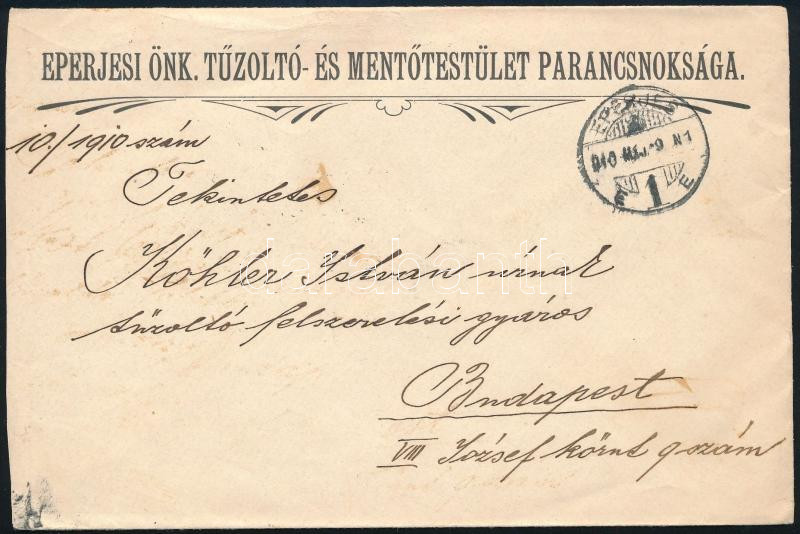 EPERJESI ÖNK. TŰZOLTÓ- ÉS MENTŐTESTÜLET PARANCSNOKSÁGA.
EPERJES
910 MÁJ. -9 N1
E 1 E
10./1910 szám
Tekintetes
Köhler István úrnak
tűzoltó felszerelési gyáros
Budapest
VIII József körut 9 szám
darabanth